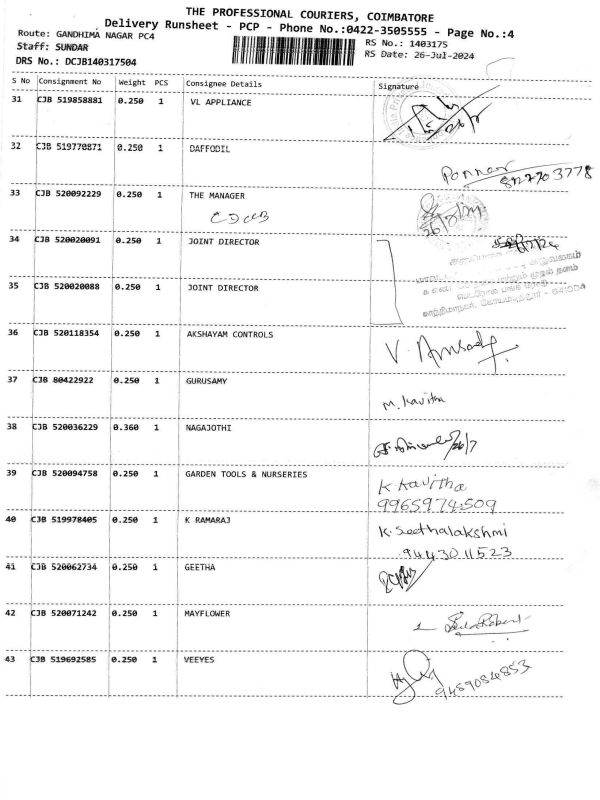 THE PROFESSIONAL COURIERS, COIMBATORE
Delivery Runsheet - PCP - Phone No.:0422-3505555 - Page No.:4
Route: GANDHIMA NAGAR PC4
RS No.: 1403175
Staff: SUNDAR
RS Date: 26-Jul-2024
DRS No.: DCJB140317504
S No Consignment No Weight PCS Consignee Details Signature
31 CJB 519858881 0.250 1 VL APPLIANCE
32 CJB 519770871 0.250 1 DAFFODIL
8127703778
33 CJB 520092229 0.250 1 THE MANAGER
34 CJB 520020091 0.250 1 JOINT DIRECTOR
35 CJB 520020088 0.250 1 JOINT DIRECTOR
641004
36 CJB 520118354 0.250 1 AKSHAYAM CONTROLS
37 CJB 80422922 0.250 1 GURUSAMY
M. Kavitha
38 CJB 520036229 0.360 1 NAGAJOTHI
26/7
39 CJB 520094758 0.250 1 GARDEN TOOLS & NURSERIES
K Kavitha
9965974509
40 CJB 519978405 0.250 1 K RAMARAJ
K. Seethalakshmi
9443011523
41 CJB 520062734 0.250 1 GEETHA
42 CJB 520071242 0.250 1 MAYFLOWER
43 CJB 519692585 0.250 1 VEEYES
9489084853